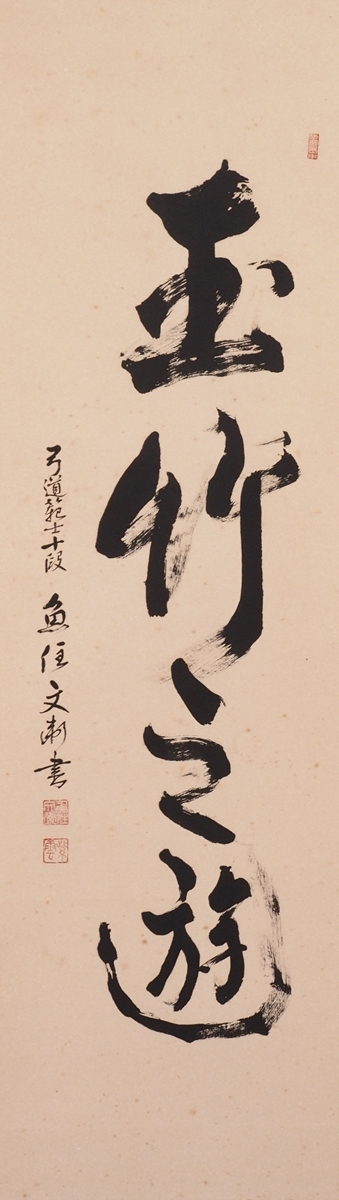 玉竹之遊
弓道範士十段 魚住文衞書